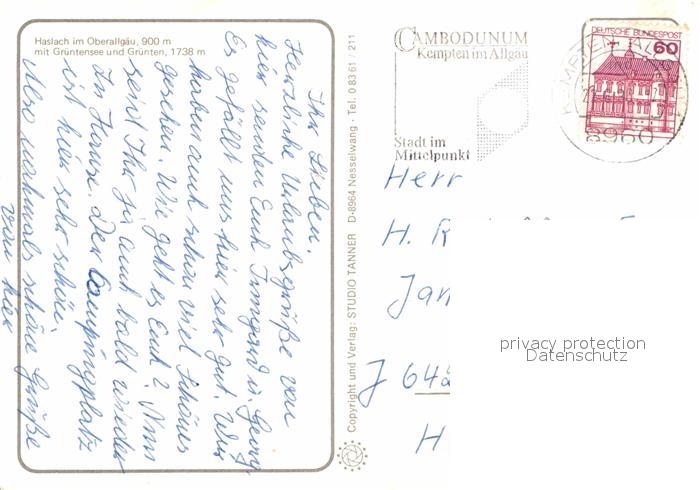 Haslach im Oberallgäu, 900 m
mit Grüntensee und Grünten, 1738 m
Ihr Lieben.
Herzliche Urlaubsgrüße von
hier senden Euch Irmgard u. Georg
Es gefällt uns hier sehr gut. Wir
haben auch schon viel Schönes
gesehen. Wie geht es Euch? Nun
seid Ihr ja auch bald wieder
zu Hause. Der Campingplatz
ist hier sehr schön.
Also nochmals schöne Grüße
von hier
Copyright und Verlag: STUDIO TANNER D-8964 Nesselwang · Tel. 0 83 61 / 211
CAMBODUNUM
Kempten im Allgäu
Stadt im
Mittelpunkt
DEUTSCHE BUNDESPOST
60
KEMPTEN
8960
Herr
H. R
Jan
644
H
privacy protection
Datenschutz